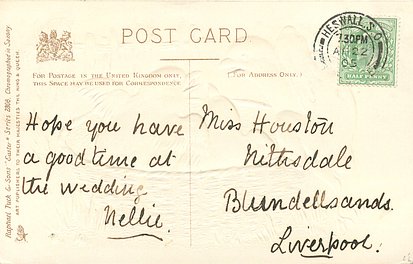 POST CARD.
FOR POSTAGE IN THE UNITED KINGDOM ONLY,
THIS SPACE MAY BE USED FOR CORRESPONDENCE.
(FOR ADDRESS ONLY.)
HESWALL S.O.
7.30PM
AP 22
05
HALF PENNY
Hope you have
a good time at
the wedding
Nellie.
Miss Houston
Nithsdale
Blundellsands.
Liverpool.
Raphael Tuck & Sons' "Easter" Series
Chromographed in Saxony
ART PUBLISHERS TO THEIR MAJESTIES THE KING & QUEEN.